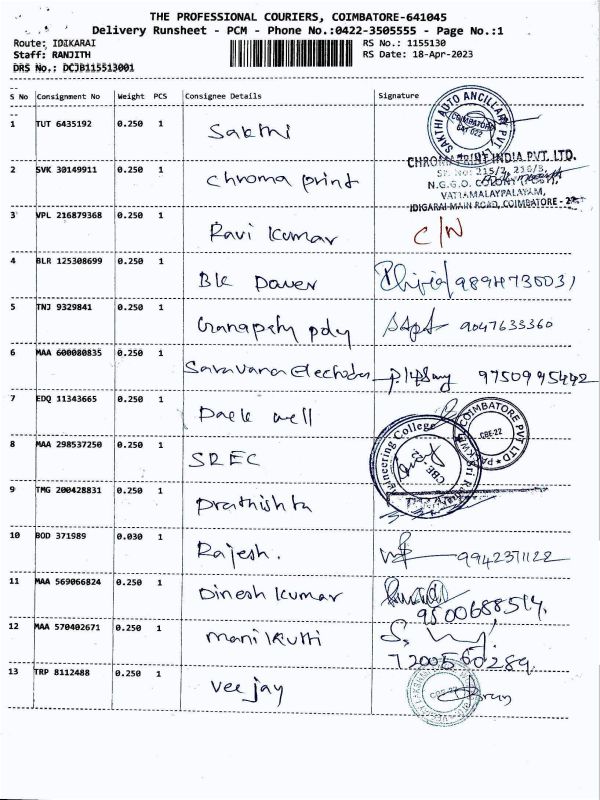 THE PROFESSIONAL COURIERS, COIMBATORE-641045
Delivery Runsheet - PCM - Phone No.:0422-3505555 - Page No.:1
Route: IDIKARAI RS No.: 1155130
Staff: RANJITH RS Date: 18-Apr-2023
DRS No.: DCJB115513001
S No Consignment No Weight PCS Consignee Details Signature
1 TUT 6435192 0.250 1 Sakthi
SAKTHI AUTO ANCILLARY PVT COIMBATORE 641 022
2 SVK 30149911 0.250 1 Chroma print
CHROMA PRINT INDIA PVT. LTD.
SF. No: 215/2, 216/3,
N.G.G.O. COLONY (POST),
VATTAMALAYPALAYAM,
IDIGARAI MAIN ROAD, COIMBATORE - 22.
3 VPL 216879368 0.250 1 Ravi Kumar C/N
4 BLR 125308699 0.250 1 Blk Power
5 TNJ 9329841 0.250 1 Ganapathy poly 9047633360
6 MAA 600080835 0.250 1 Saravana Electrodes 9750995442
7 EDQ 11343665 0.250 1 Pack well
COIMBATORE PVT LTD CBE-22
8 MAA 298537250 0.250 1 SREC
Engineering College CBE-22
9 TMG 200428831 0.250 1 Prathishta
10 BOD 371989 0.030 1 Rajesh. 9942371122
11 MAA 569066824 0.250 1 Dinesh Kumar
9500688514.
12 MAA 570402671 0.250 1 Mani Kutti
7200560289.
13 TRP 8112488 0.250 1 Veejay
CBE-22